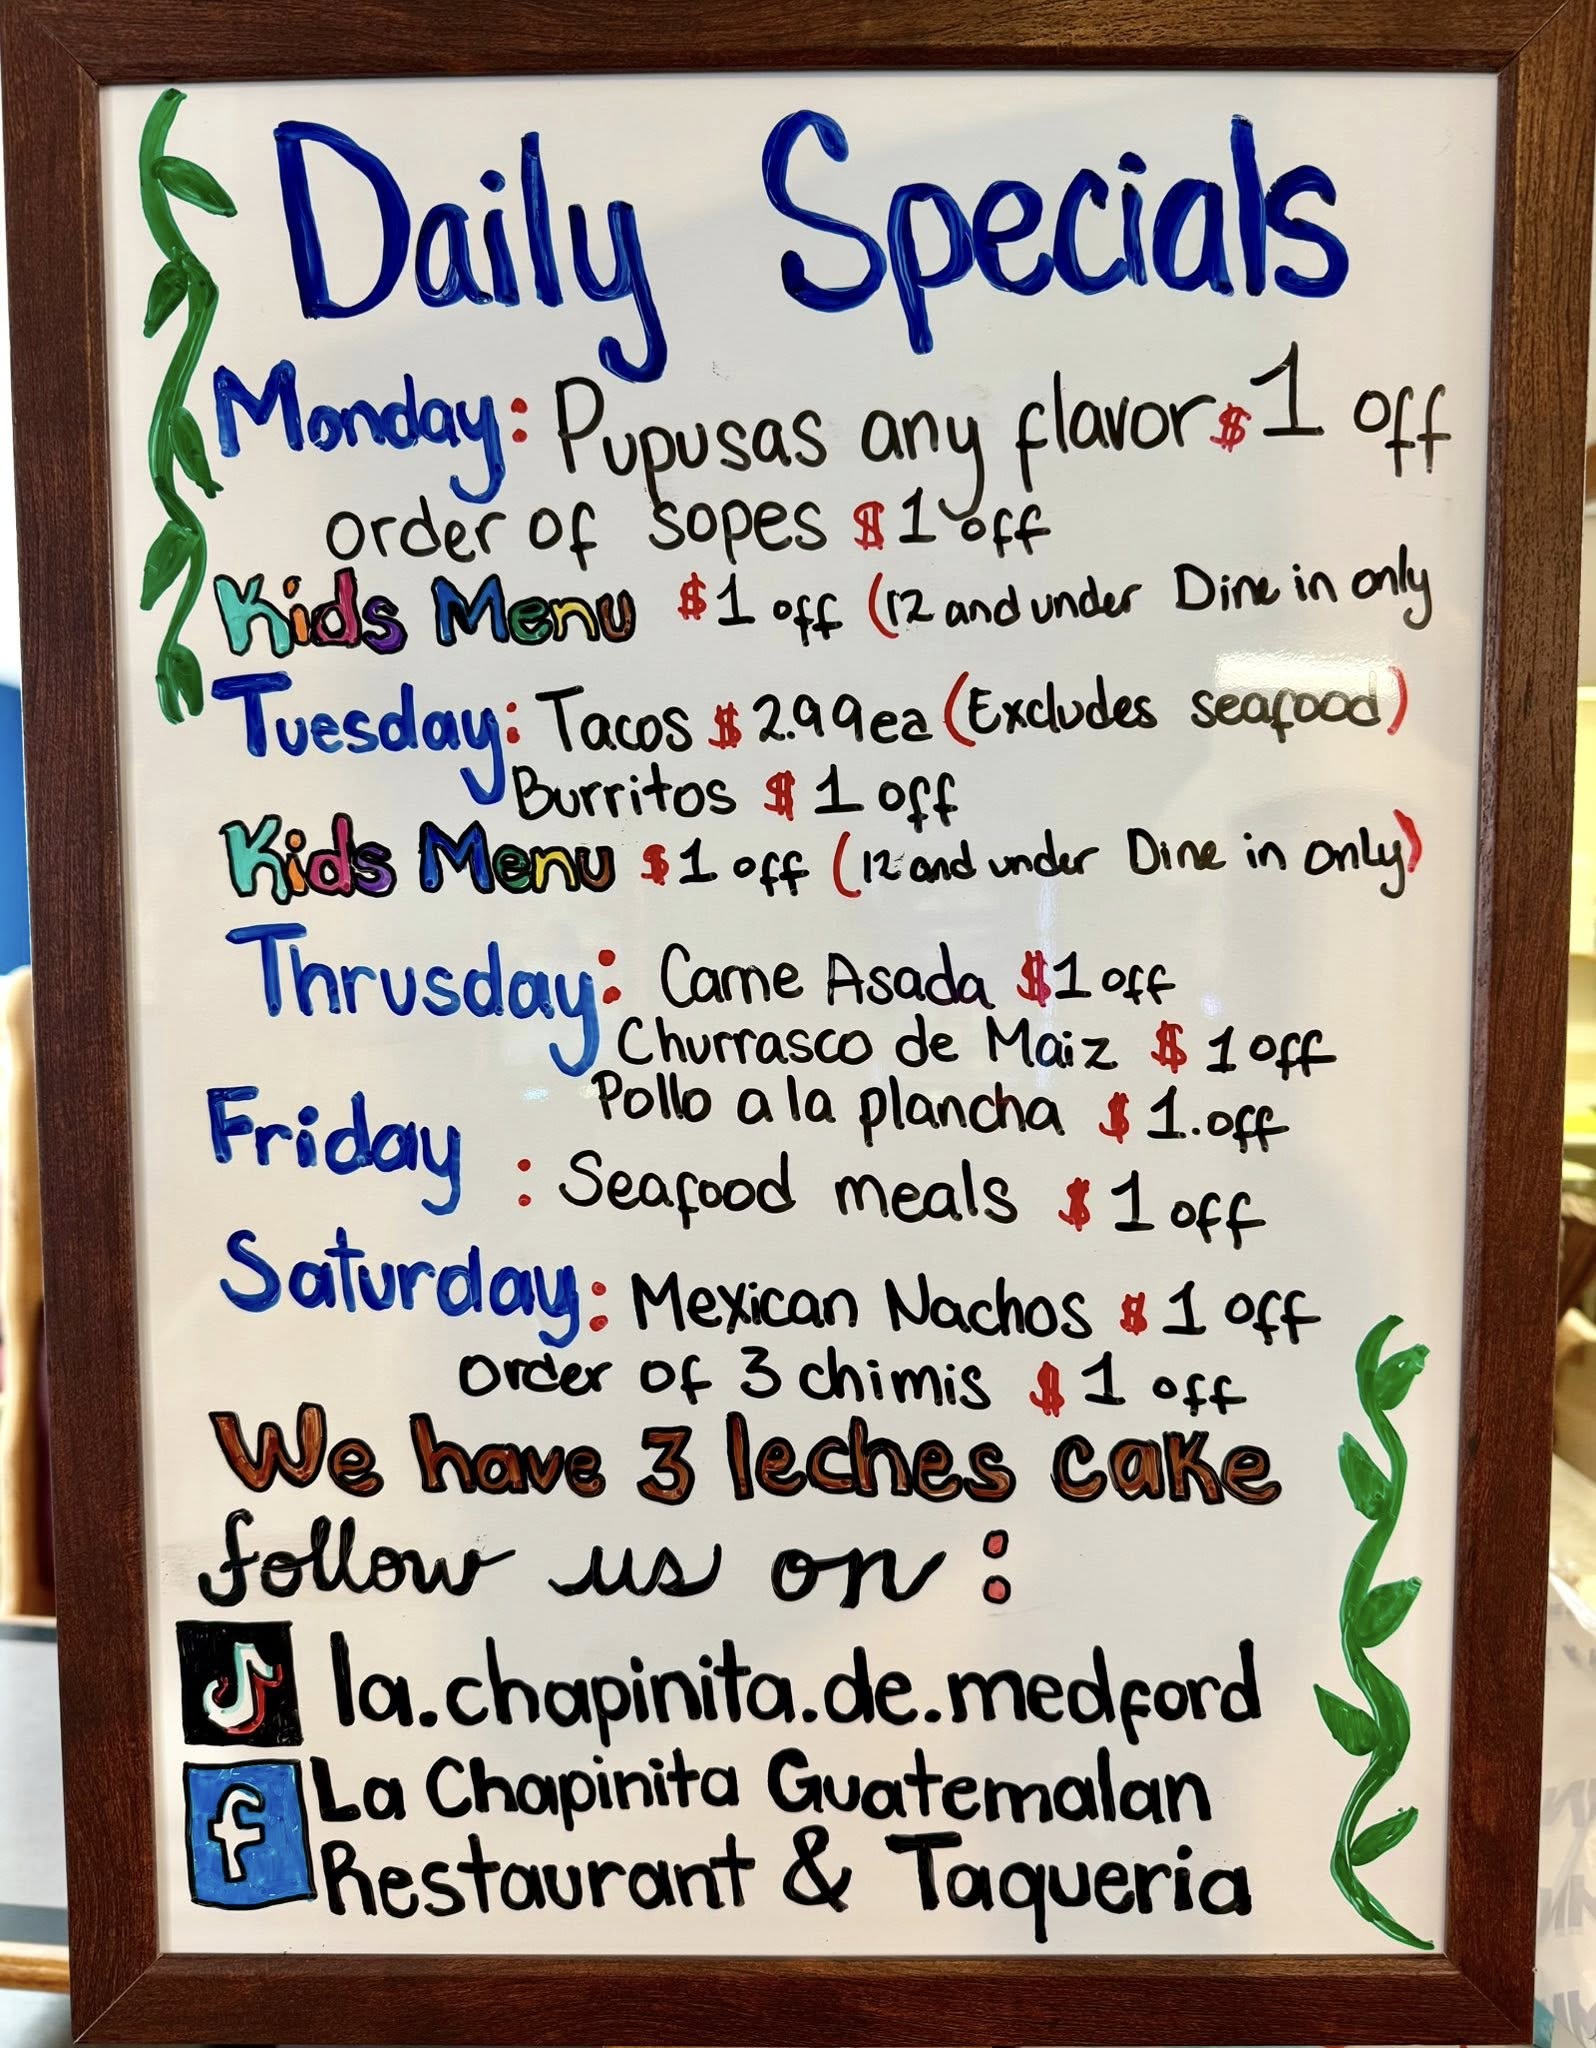 Daily Specials
Monday: Pupusas any flavor $1 off
order of sopes $1 off
Kids Menu $1 off (12 and under Dine in only
Tuesday: Tacos $2.99ea (Excludes seafood)
Burritos $1 off
Kids Menu $1 off (12 and under Dine in only)
Thrusday: Carne Asada $1 off
Churrasco de Maiz $1 off
Pollo a la plancha $1.off
Friday : Seafood meals $1 off
Saturday: Mexican Nachos $1 off
order of 3 chimis $1 off
We have 3 leches cake
follow us on :
la.chapinita.de.medford
f La Chapinita Guatemalan
Restaurant & Taqueria